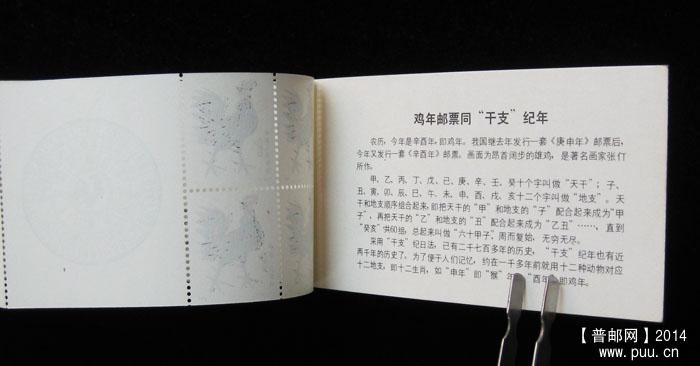 鸡年邮票同“干支”纪年
农历，今年是辛酉年，即鸡年。我国继去年发行一套《庚申年》邮票后，
今年又发行一套《辛酉年》邮票。画面为昂首阔步的雄鸡，是著名画家张仃
所作。
甲、乙、丙、丁、戊、己、庚、辛、壬、癸十个字叫做“天干”；子、
丑、寅、卯、辰、巳、午、未、申、酉、戌、亥十二个字叫做“地支”。天
干和地支顺序组合起来，即把天干的“甲”和地支的“子”配合起来成为“甲
子”，再把天干的“乙”和地支的“丑”配合起来成为“乙丑”……，直到
“癸亥”供60组，总起来叫做“六十甲子”，周而复始，无穷无尽。
采用“干支”纪日法，已有二千七百多年的历史，“干支”纪年也有近
两千年的历史了。为了便于人们记忆，约在一千多年前就用十二种动物对应
十二地支，即十二生肖，如“申年”即“猴”年，“酉年”即鸡年。
【普邮网】2014
www.puu.cn